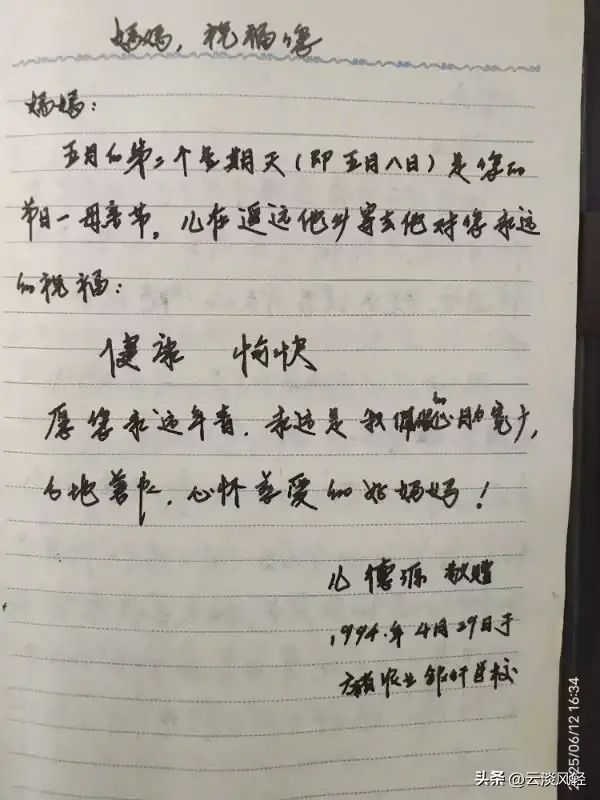 妈妈，祝福您
妈妈：
五月的第二个星期天（即五月八日）是您的
节日一母亲节。儿在遥远他乡寄去他对您永远
的祝福：
健康 愉快
愿您永远年青，永远是我们心胸宽广，
心地善良，心怀慈爱的好妈妈！
儿 德源 敬赠
1994.年4月29日于
农业银行学校
2025/06/12 16:34
头条 @云淡风轻